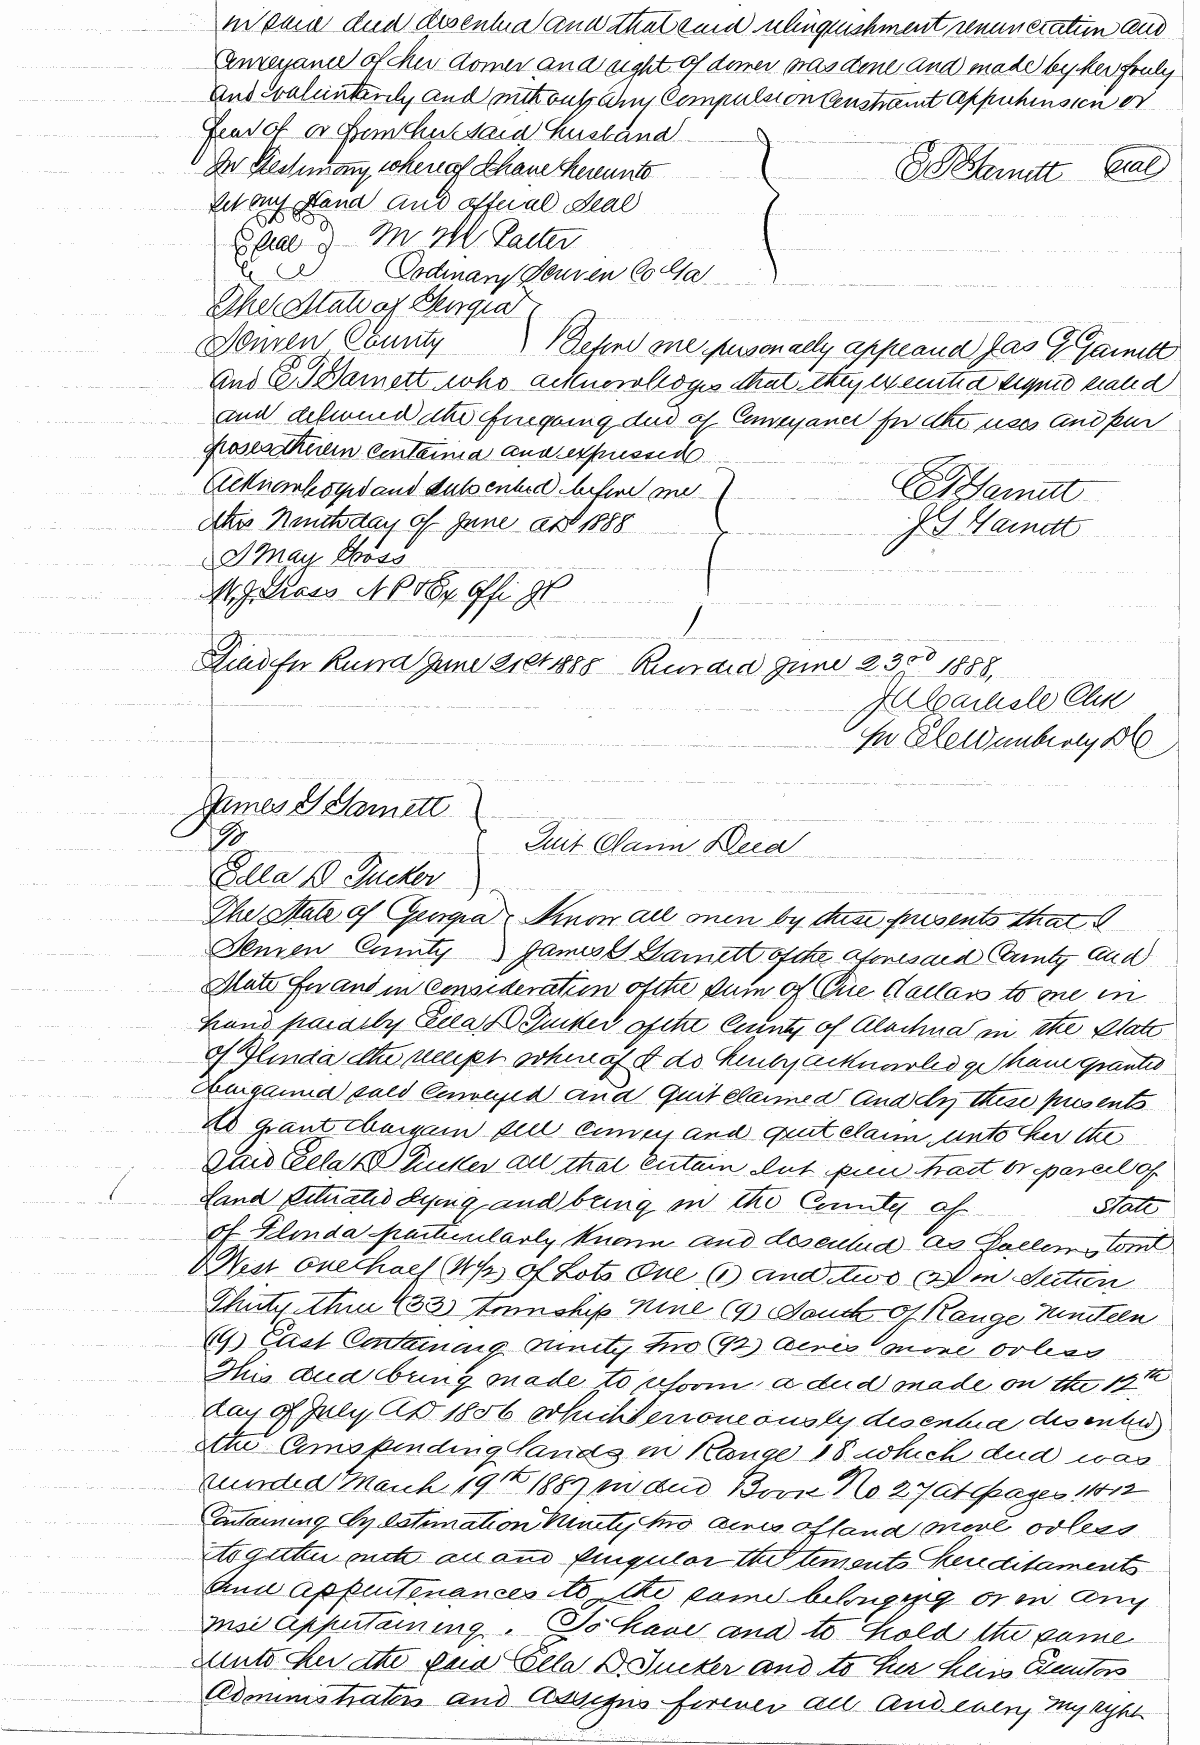 in said deed described and that said relinquishment renunciation and
Conveyance of her dower and right of dower was done and made by her freely
and voluntarily and without any Compulsion Constraint Apprehension or
fear of or from her said husband
In Testimony whereof I have hereunto
set my Hand and official Seal
Seal M M Potter
Ordinary Scriven Co Ga
E T Garnett Seal
The State of Georgia
Scriven County Before me personally appeared Jas G Garnett
and E T Garnett who acknowledges that they executed signed sealed
and delivered the foregoing deed of Conveyance for the uses and pur
poses therein contained and expressed
Acknowledged and subscribed before me
this Ninth day of June AD 1888
May Gross
W. J. Gross N P & Ex Offi J P
E T Garnett
J G Garnett
Filed for Record June 21st 1888 Recorded June 23rd 1888,
J A Carlisle Clk
per Wimberly D C
James G Garnett
To
Ella D Tucker
Quit Claim Deed
The State of Georgia Know all men by these presents that I
Scriven County James G Garnett of the aforesaid County and
State for and in consideration of the sum of One dollars to me in
hand paid by Ella D Tucker of the County of Alachua in the State
of Florida the receipt whereof I do hereby acknowledge have granted
bargained sold conveyed and quit claimed and by these presents
do grant bargain sell convey and quit claim unto her the
said Ella D Tucker all that certain lot piece tract or parcel of
land situated lying and being in the County of State
of Florida particularly known and described as follows towit
West one half (W½) of Lots One (1) and two (2) in Section
Thirty three (33) township nine (9) South of Range nineteen
(19) East Containing ninety two (92) acres more or less
This deed being made to reform a deed made on the 12th
day of July AD 1856 which erroneously described described
the Corresponding lands in Range 18 which deed was
recorded March 19th 1887 in deed Book No 27 at pages 11 & 12
Containing by estimation Ninety two acres of land more or less
together with all and singular the tements hereditaments
and appurtenances to the same belonging or in any
wise appertaining. To have and to hold the same
unto her the said Ella D. Tucker and to her heirs Executors
Administrators and Assigns forever all and every my right